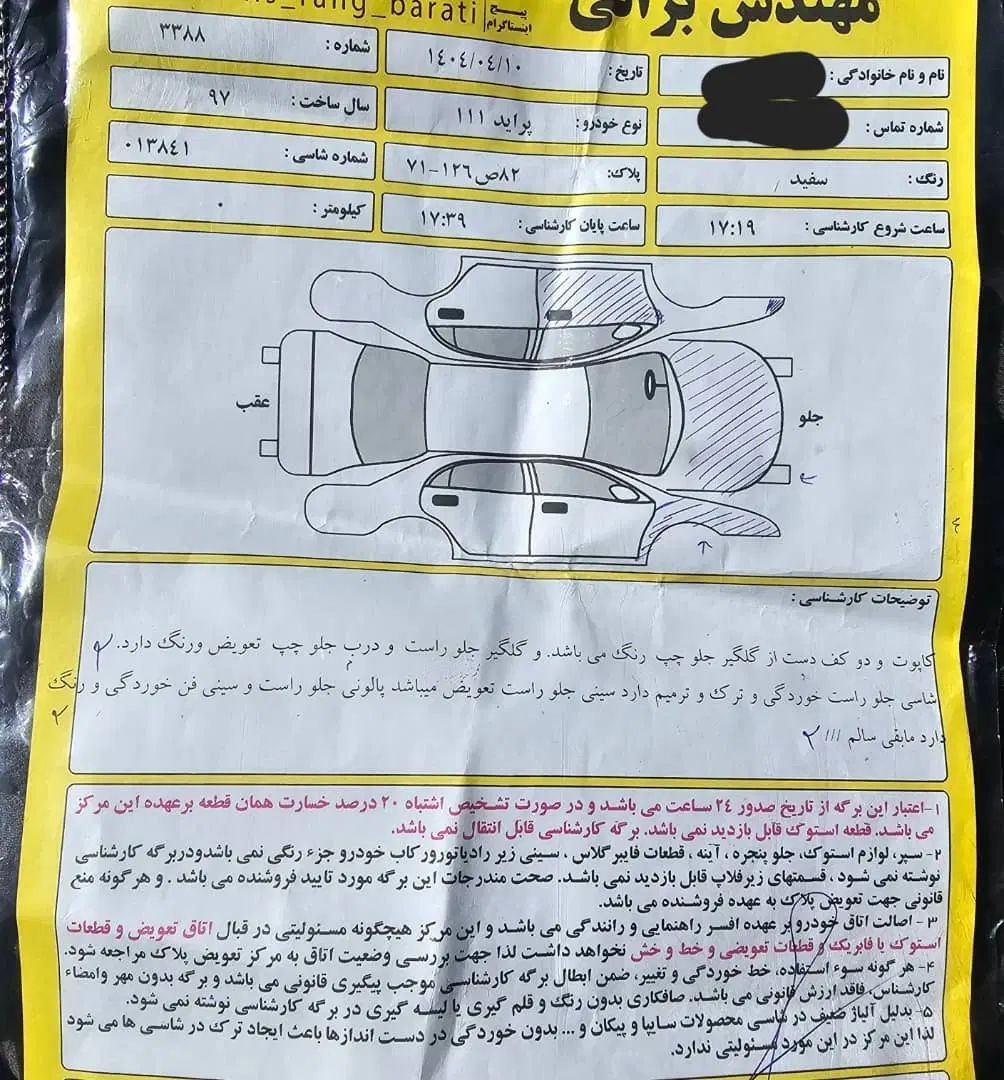 مهندس براتی
پیج اینستاگرام
_rang_barati
نام و نام خانوادگی :
تاریخ : ۱۴۰۴/۰۴/۱۰
شماره : ۳۳۸۸
شماره تماس :
نوع خودرو : پراید ۱۱۱
سال ساخت : ۹۷
رنگ : سفید
پلاک: ۸۲ص۱۲۶-۷۱
شماره شاسی : ۰۱۳۸۴۱
ساعت شروع کارشناسی : ۱۷:۱۹
ساعت پایان کارشناسی : ۱۷:۳۹
کیلومتر : ۰
جلو
عقب
توضیحات کارشناسی :
کاپوت و دو کف دست از گلگیر جلو چپ رنگ می باشد. و گلگیر جلو راست و درب جلو چپ تعویض ورنگ دارد.
شاسی جلو راست خوردگی و ترک و ترمیم دارد سینی جلو راست تعویض میباشد پالونی جلو راست و سینی فن خوردگی و رنگ
دارد مابقی سالم ///
۱-اعتبار این برگه از تاریخ صدور ۲۴ ساعت می باشد و در صورت تشخیص اشتباه ۲۰ درصد خسارت همان قطعه برعهده این مرکز
می باشد. قطعه استوک قابل بازدید نمی باشد. برگه کارشناسی قابل انتقال نمی باشد.
۲- سپر، لوازم استوک، جلو پنجره ، آینه ، قطعات فایبرگلاس ، سینی زیر رادیاتورور کاب خودرو جزء رنگی نمی باشدودربرگه کارشناسی
نوشته نمی شود ، قسمتهای زیرفلاپ قابل بازدید نمی باشد. صحت مندرجات این برگه مورد تایید فروشنده می باشد . و هرگونه منع
قانونی جهت تعویض پلاک به عهده فروشنده می باشد.
۳- اصالت اتاق خودرو بر عهده افسر راهنمایی و رانندگی می باشد و این مرکز هیچگونه مسئولیتی در قبال اتاق تعویض و قطعات
استوک یا فابریک و قطعات تعویضی و خط و خش نخواهد داشت لذا جهت بررسی وضعیت اتاق به مرکز تعویض پلاک مراجعه شود.
۴- هر گونه سوء استفاده، خط خوردگی و تغییر، ضمن ابطال برگه کارشناسی موجب پیگیری قانونی می باشد و برگه بدون مهر وامضاء
کارشناس، فاقد ارزش قانونی می باشد. صافکاری بدون رنگ و قلم گیری یا لیسه گیری در برگه کارشناسی نوشته نمی شود.
۵- بدلیل آلیاژ ضعیف در شاسی محصولات سایپا و پیکان و ... بدون خوردگی در دست اندازها باعث ایجاد ترک در شاسی ها می شود
لذا این مرکز در این مورد مسئولیتی ندارد.